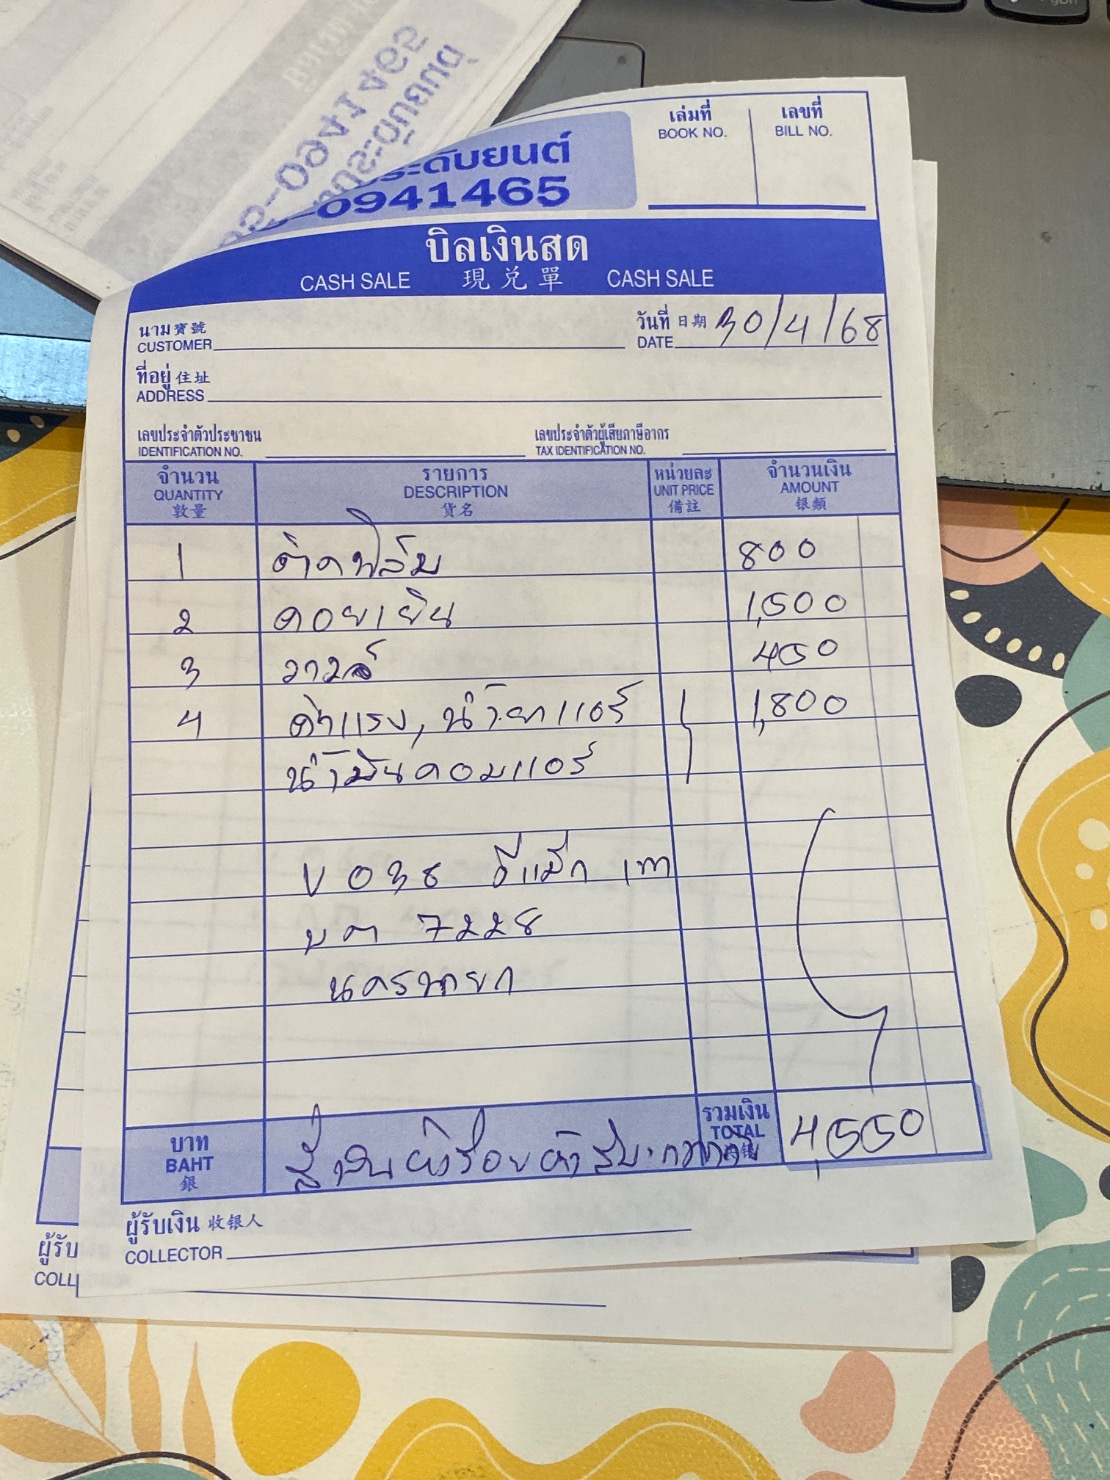 เล่มที่
BOOK NO.
เลขที่
BILL NO.
ระดับยนต์
-0941465
บิลเงินสด
CASH SALE 現兑單 CASH SALE
นาม 寳號
CUSTOMER
วันที่ 日期 30/4/68
DATE
ที่อยู่ 住址
ADDRESS
เลขประจำตัวประชาชน
IDENTIFICATION NO.
เลขประจำตัวผู้เสียภาษีอากร
TAX IDENTIFICATION NO.
จำนวน รายการ หน่วยละ จำนวนเงิน
QUANTITY DESCRIPTION UNIT PRICE AMOUNT
數量 貨名 備註 银額
1 ติดฟิล์ม 800
2 คอยเย็น 1,500
3 วาวล์ 450
4 ค่าแรง, น้ำยาแอร์ 1,800
น้ำมันคอมแอร์
V036 ดีแม็ก เทา
บค 7228
นครนายก
บาท
BAHT
銀
สี่พันห้าร้อยห้าสิบบาทถ้วน
รวมเงิน
TOTAL
4,550
ผู้รับเงิน 收银人
COLLECTOR
ผู้รับ
COLL